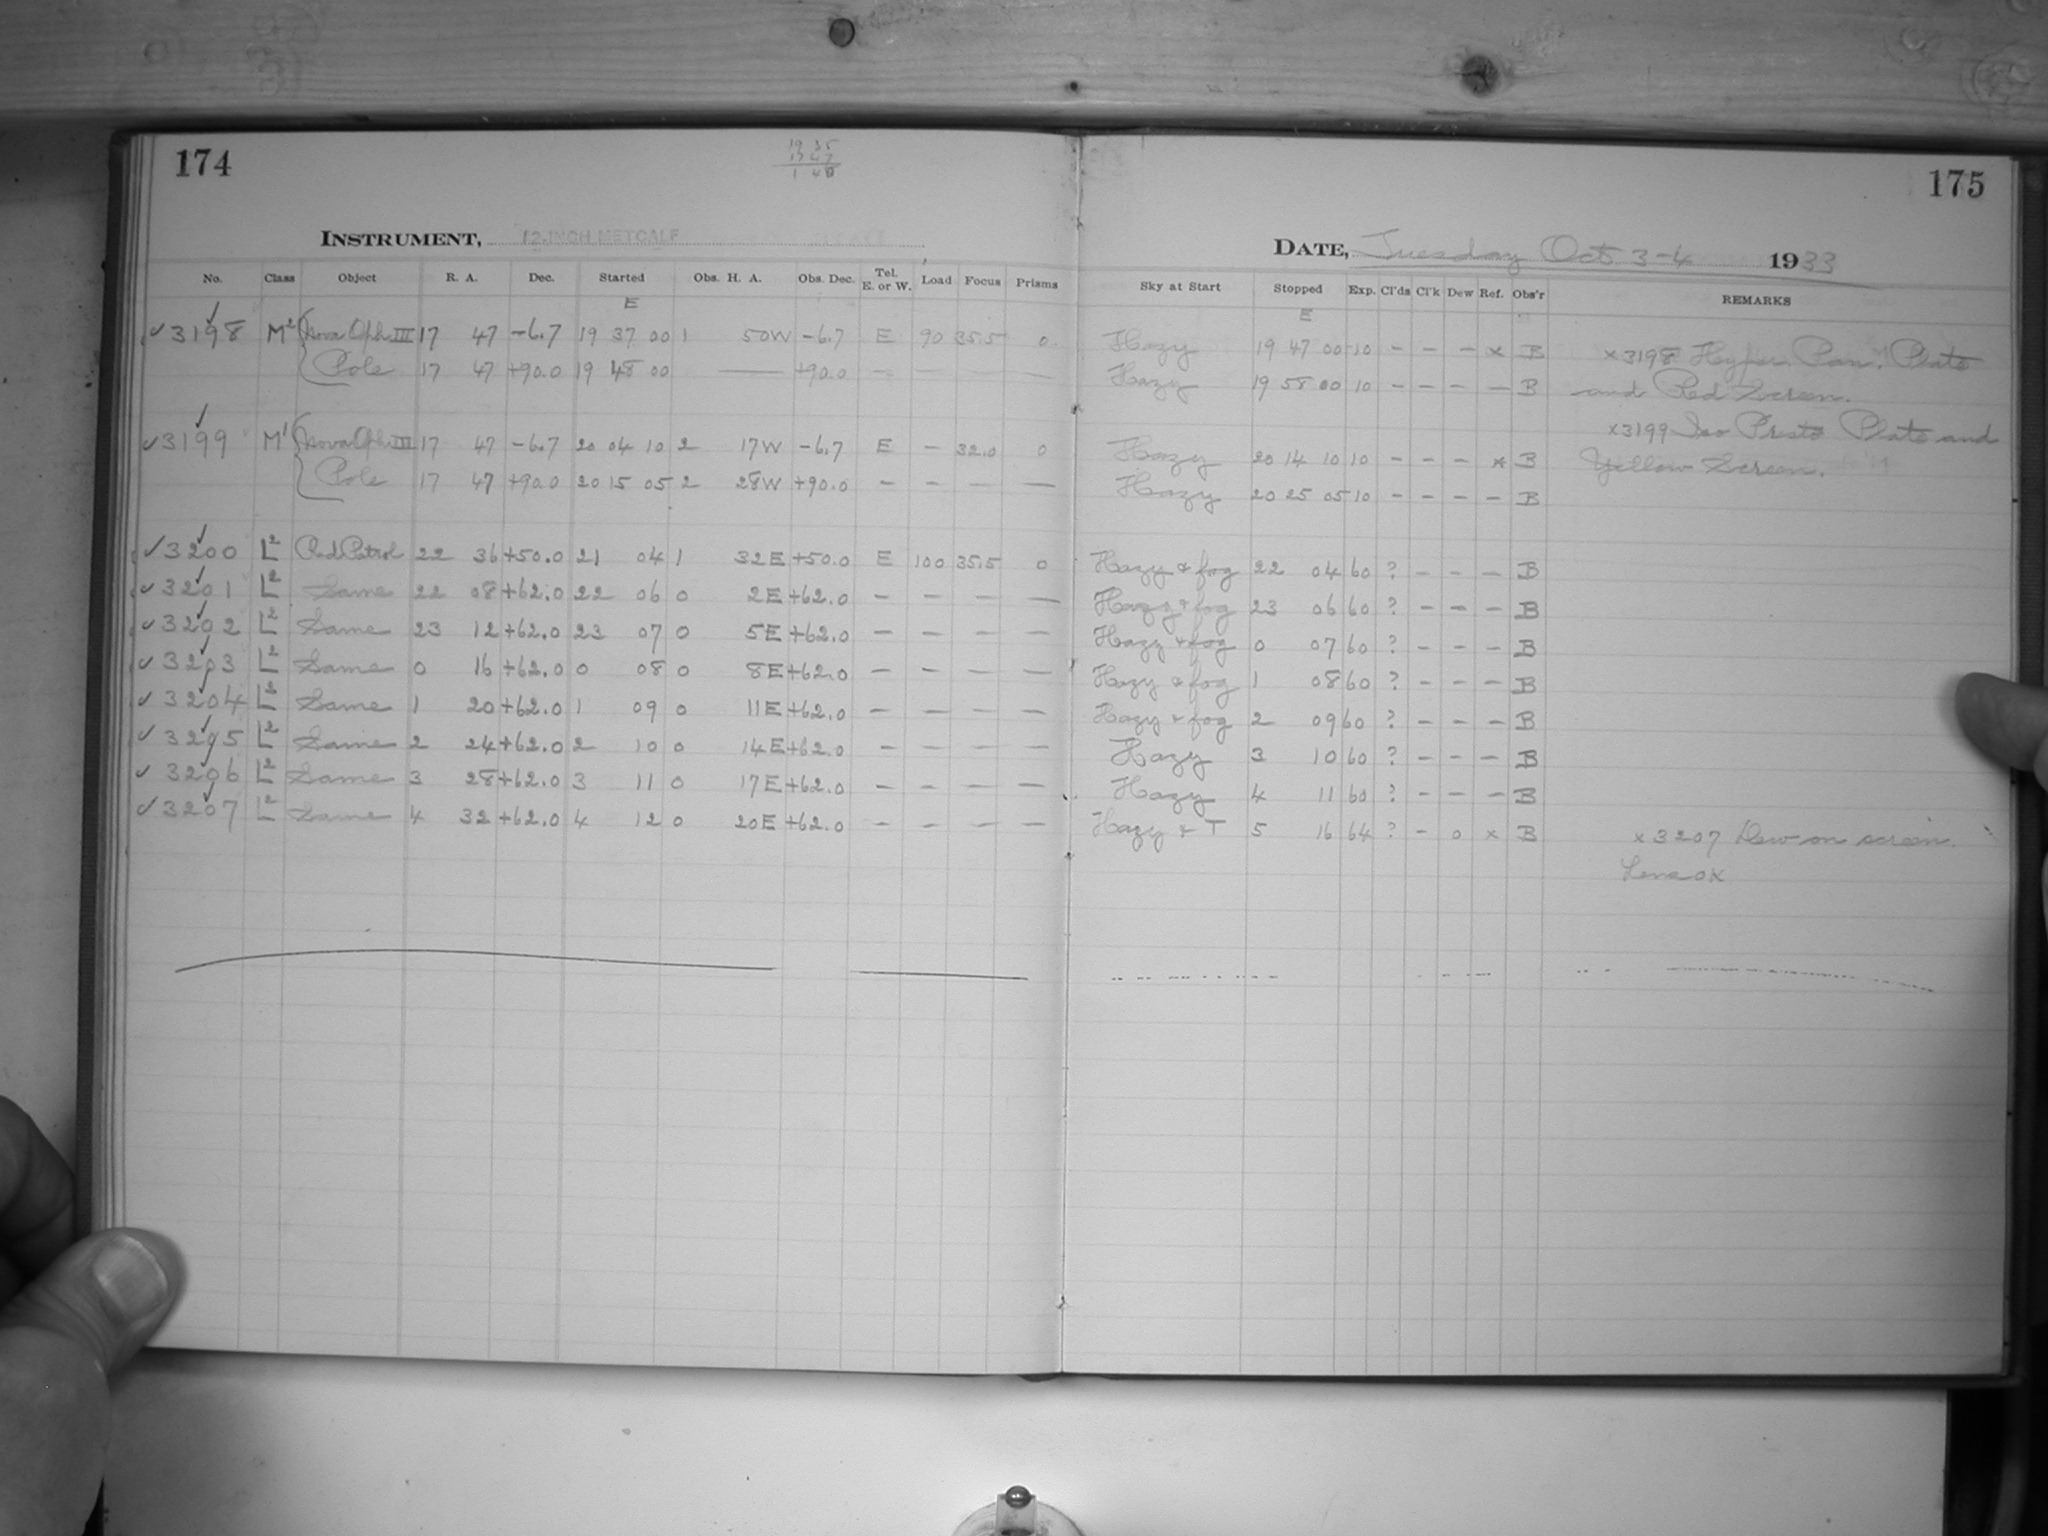 174
19 35
17 47
1 48
INSTRUMENT, 12-INCH METCALF
No. Class Object R. A. Dec. Started Obs. H. A. Obs. Dec. Tel. E. or W. Load Focus Prisms
E
✓3198 M² Nova Oph. III 17 47 -6.7 19 37 00 1 50W -6.7 E 90 35.5 0
Pole 17 47 +90.0 19 48 00 — +90.0 — — — —
✓3199 M' Nova Oph. III 17 47 -6.7 20 04 10 2 17W -6.7 E - 32.0 0
Pole 17 47 +90.0 20 15 05 2 28W +90.0 - - - —
✓3200 L² Red Patrol 22 36 +50.0 21 04 1 32E +50.0 E 100 35.5 0
✓3201 L² Same 22 08 +62.0 22 06 0 2E +62.0 - - - —
✓3202 L² Same 23 12 +62.0 23 07 0 5E +62.0 - - - —
✓3203 L² Same 0 16 +62.0 0 08 0 8E +62.0 - - - —
✓3204 L² Same 1 20 +62.0 1 09 0 11E +62.0 - - - —
✓3205 L² Same 2 24 +62.0 2 10 0 14E +62.0 - - - —
✓3206 L² Same 3 28 +62.0 3 11 0 17E +62.0 - - - —
✓3207 L² Same 4 32 +62.0 4 12 0 20E +62.0 - - - —
175
DATE, Tuesday Oct 3-4 1933
Sky at Start Stopped Exp. Cl'ds Cl'k Dew Ref. Obs'r REMARKS
E
Hazy 19 47 00 10 - - - x B x3198 Hyper. Pan. Plate
Hazy 19 58 00 10 - - - - B and Red Screen.
x3199 Iso Presto Plate and
Hazy 20 14 10 10 - - - x B Yellow Screen.
Hazy 20 25 05 10 - - - - B
Hazy & fog 22 04 60 ? - - - B
Hazy & fog 23 06 60 ? - - - B
Hazy & fog 0 07 60 ? - - - B
Hazy & fog 1 08 60 ? - - - B
Hazy & fog 2 09 60 ? - - - B
Hazy 3 10 60 ? - - - B
Hazy 4 11 60 ? - - - B
Hazy & T 5 16 64 ? - 0 x B x3207 Dew on screen.
Lens OK